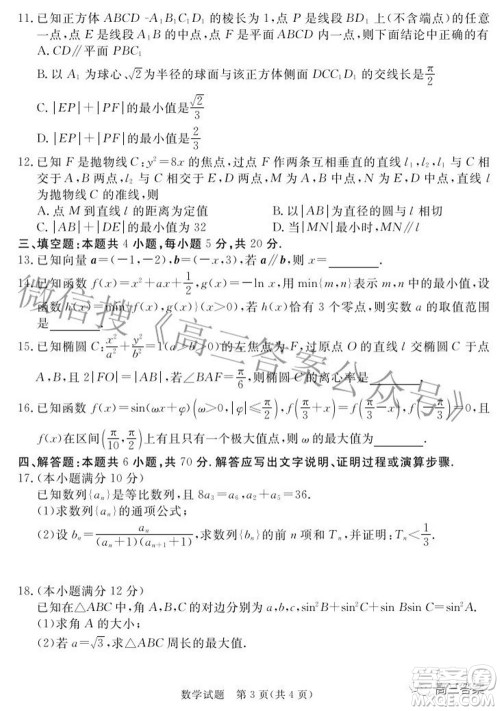 11. 已知正方体 ABCD-A₁B₁C₁D₁ 的棱长为 1,点 P 是线段 BD₁ 上(不含端点)的任意
一点,点 E 是线段 A₁B 的中点,点 F 是平面 ABCD 内一点,则下面结论中正确的有
A. CD∥平面 PBC₁
B. 以 A₁ 为球心、√2 为半径的球面与该正方体侧面 DCC₁D₁ 的交线长是 π/2
C. |EP|+|PF| 的最小值是 √2/3
D. |EP|+|PF| 的最小值是 2/3
12. 已知 F 是抛物线 C:y²=8x 的焦点,过点 F 作两条互相垂直的直线 l₁,l₂,l₁ 与 C 相
交于 A,B 两点,l₂ 与 C 相交于 E,D 两点,M 为 A,B 中点,N 为 E,D 中点,直线 l 为
抛物线 C 的准线,则
A. 点 M 到直线 l 的距离为定值 B. 以 |AB| 为直径的圆与 l 相切
C. |AB|+|DE| 的最小值为 32 D. 当 |MN| 最小时,MN∥l
三、填空题:本题共 4 小题,每小题 5 分,共 20 分.
13. 已知向量 a=(-1,-2),b=(-x,3),若 a∥b,则 x=
14. 已知函数 f(x)=x²+ax+1/2,g(x)=-ln x,用 min{m,n} 表示 m,n 中的最小值,设函
数 h(x)=min{f(x),g(x)}(x>0),若 h(x) 恰有 3 个零点,则实数 a 的取值范围
是
15. 已知椭圆 C:x²/a²+y²/b²=1(a>b>0) 的左焦点为 F,过原点 O 的直线 l 交椭圆 C 于点
A,B,且 2|FO|=|AB|,若∠BAF=π/6,则椭圆 C 的离心率是
16. 已知函数 f(x)=sin(ωx+φ)(ω>0,|φ|≤π/2),f(π/3-x)=-f(π/3+x),
且 f(x) 在区间(π/10,π/2)上有且仅有一个极大值点,则 ω 的最大值为
四、解答题:本题共 6 小题,共 70 分. 解答应写出文字说明、证明过程或演算步骤.
17. (本小题满分 10 分)
已知数列{aₙ}是等比数列,且 8a₃=a₆,a₂+a₅=36.
(1)求数列{aₙ}的通项公式;
(2)设 bₙ=aₙ/((aₙ+1)(aₙ₊₁+1)),求数列{bₙ}的前 n 项和 Tₙ,并证明:Tₙ<1/3.
18. (本小题满分 12 分)
已知在△ABC 中,角 A,B,C 的对边分别为 a,b,c,sin²B+sin²C=sin²A-sin B sin C.
(1)求角 A 的大小;
(2)若 a=√3,求△ABC 周长的最大值.
数学试题 第 3 页(共 4 页)
微信搜《高三答案公众号》
高三答案